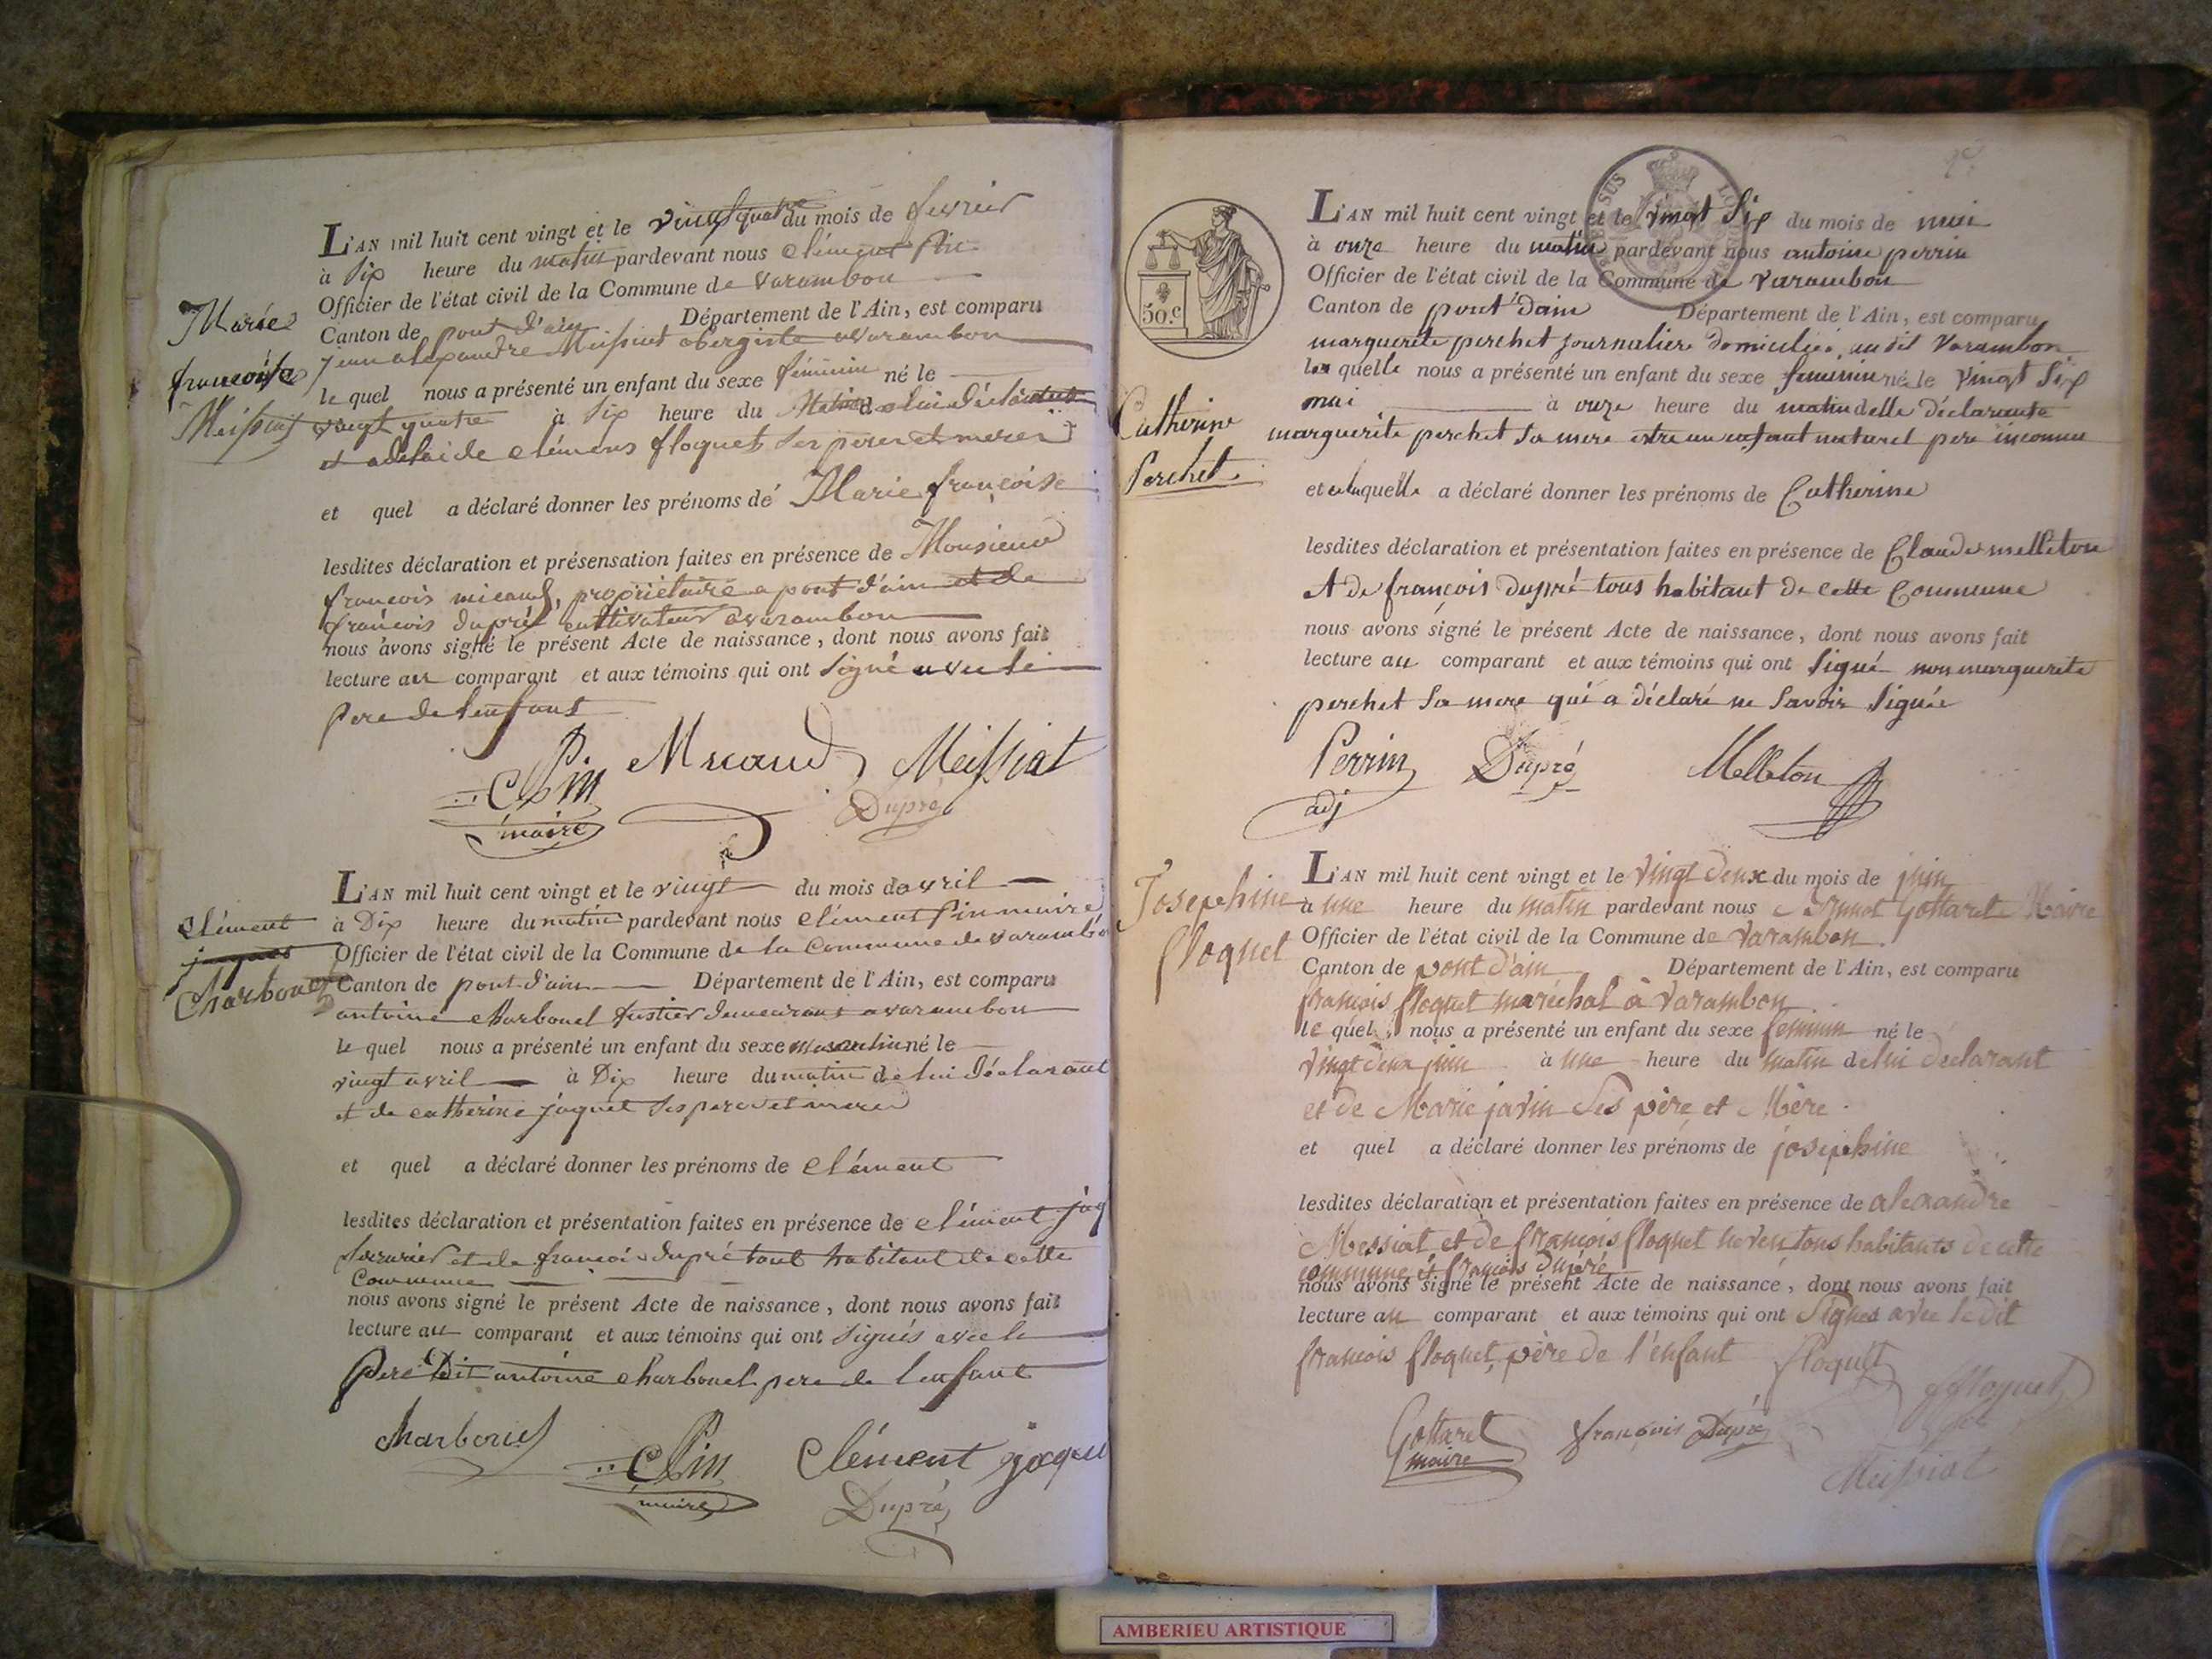 L'AN mil huit cent vingt et le vingt quatre du mois de fevrier
à six heure du matin pardevant nous clément Pin
Officier de l'état civil de la Commune de varambon
Canton de pont d'ain Département de l'Ain, est comparu
jean alexandre Meissiat obergiste a varambon
le quel nous a présenté un enfant du sexe féminin né le
vingt quatre à six heure du matin de lui déclarant
et adelaide clémens floquet ses peres et meres
Marie
francoise
Meissiat
et quel a déclaré donner les prénoms de Marie françoise
lesdites déclaration et présensation faites en présence de Monsieur
francois micaud, propriétaire a pont d'ain et de
françois dupré cultivateur a varambon
nous avons signé le présent Acte de naissance, dont nous avons fait
lecture au comparant et aux témoins qui ont signé avec le
pere de l'enfant
Pin Micaud Meissiat
maire Dupré
L'AN mil huit cent vingt et le vingt du mois d'avril
à Dix heure du matin pardevant nous clément Pin maire
Officier de l'état civil de la Commune de la Commune de varambon
Canton de pont d'ain Département de l'Ain, est comparu
antoine charbouel fustier demeurant a varambon
le quel nous a présenté un enfant du sexe masculin né le
vingt avril à Dix heure du matin de lui déclarant
et de catherine jaquet ses pere et mere
clément
jaques
Charbouel
et quel a déclaré donner les prénoms de clément
lesdites déclaration et présentation faites en présence de clément jaq
serrurier et de françois dupré tout habitant de cette
Commune
nous avons signé le présent Acte de naissance, dont nous avons fait
lecture au comparant et aux témoins qui ont signés avec le
Pere Dit antoine charbouel pere de l'enfant
charbouel Pin Clément jaque
maire Dupré
50.c
L'AN mil huit cent vingt et le vingt six du mois de mai
à onze heure du matin pardevant nous antoine perrin
Officier de l'état civil de la Commune de varambon
Canton de pont d'ain Département de l'Ain, est comparu
marguerite perchet journaliere domiciliée, audit varambon
la quelle nous a présenté un enfant du sexe feminin né le vingt six
mai à onze heure du matin delle déclarante
marguerite perchet sa mere estre un enfant naturel pere inconnu
Catherine
Perchet
et laquelle a déclaré donner les prénoms de Catherine
lesdites déclaration et présentation faites en présence de Claude melleton
et de françois dupré tous habitant de cette Commune
nous avons signé le présent Acte de naissance, dont nous avons fait
lecture au comparant et aux témoins qui ont signé non marguerite
perchet sa mere qui a déclaré ne savoir signée
Perrin Dupré Melleton
adj
L'AN mil huit cent vingt et le vingt deux du mois de juin
à une heure du matin pardevant nous Gottaret Maire
Officier de l'état civil de la Commune de varambon.
Canton de pont d'ain Département de l'Ain, est comparu
françois floquet maréchal à varambon
le quel nous a présenté un enfant du sexe feminin né le
vingt deux juin à une heure du matin de lui declarant
et de Marie javin ses père et Mère.
Josephine
floquet
et quel a déclaré donner les prénoms de josephine
lesdites déclaration et présentation faites en présence de alexandre
Messiat et de françois floquet neveu tous habitants de cette
commune et françois dupré
nous avons signé le présent Acte de naissance, dont nous avons fait
lecture au comparant et aux témoins qui ont Signes avec le dit
francois floquet, père de l'enfant floquet
ffloquet
Gottaret françois Dupré
maire
Meissiat
AMBERIEU ARTISTIQUE